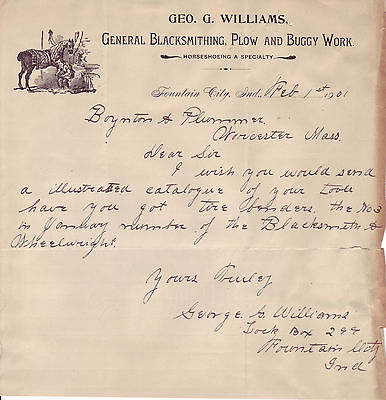 GEO. G. WILLIAMS,
GENERAL BLACKSMITHING, PLOW AND BUGGY WORK.
HORSESHOEING A SPECIALTY.
Fountain City, Ind., Feb 1st 1901
Boynton & Plummer
Worcester Mass.
Dear Sir
I wish you would send
a illustrated catalogue of your tools
have you got tire benders, the No 3
in January number of the Blacksmith &
Wheelwright.
Yours Truley
George G Williams
Lock Box 299
Fountain City
Ind